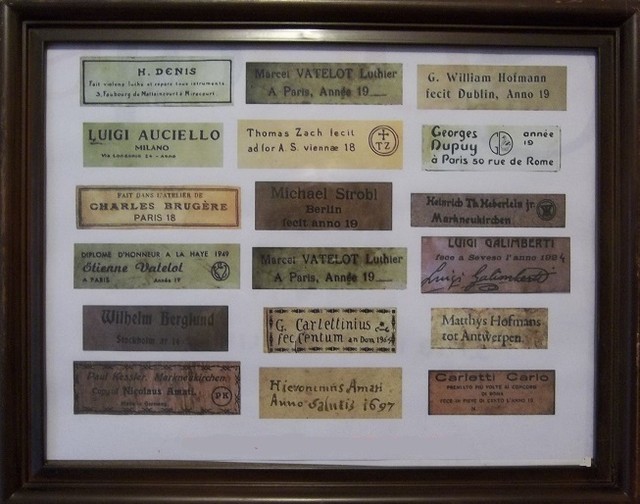 H. DENIS
Fait violons luths et repare tous instruments
3, Faubourg de Mattaincourt à Mirecourt.
Marcel VATELOT Luthier
A Paris, Année 19
G. William Hofmann
fecit Dublin, Anno 19
LUIGI AUCIELLO
MILANO
Via Lorenzio 24 - Anno
Thomas Zach fecit
ad for A. S. viennae 18
TZ
Georges
Dupuy
année
19
à Paris 50 rue de Rome
FAIT DANS L'ATELIER DE
CHARLES BRUGÈRE
PARIS 18
Michael Strobl
Berlin
fecit anno 19
Heinrich Th. Heberlein jr.
Markneukirchen
DIPLOME D'HONNEUR A LA HAYE 1949
Étienne Vatelot
A PARIS Année 19
Marcel VATELOT Luthier
A Paris, Année 19
LUIGI GALIMBERTI
fece a Seveso l'anno 1924
Luigi Galimberti
Wilhelm Berglund
Stockholm
G. Carlettinius
fec. Centum an Dom. 1965
Matthÿs Hofmans
tot Antwerpen
Paul Kessler, Markneukirchen
Nicolaus Amati
Made in Germany
PK
Hieronimus Amati
Anno Salutis 1697
Carletti Carlo
PREMIATO PIÙ VOLTE AI CONCORSI
DI ROMA
FECE IN PIEVE DI CENTO L'ANNO 19